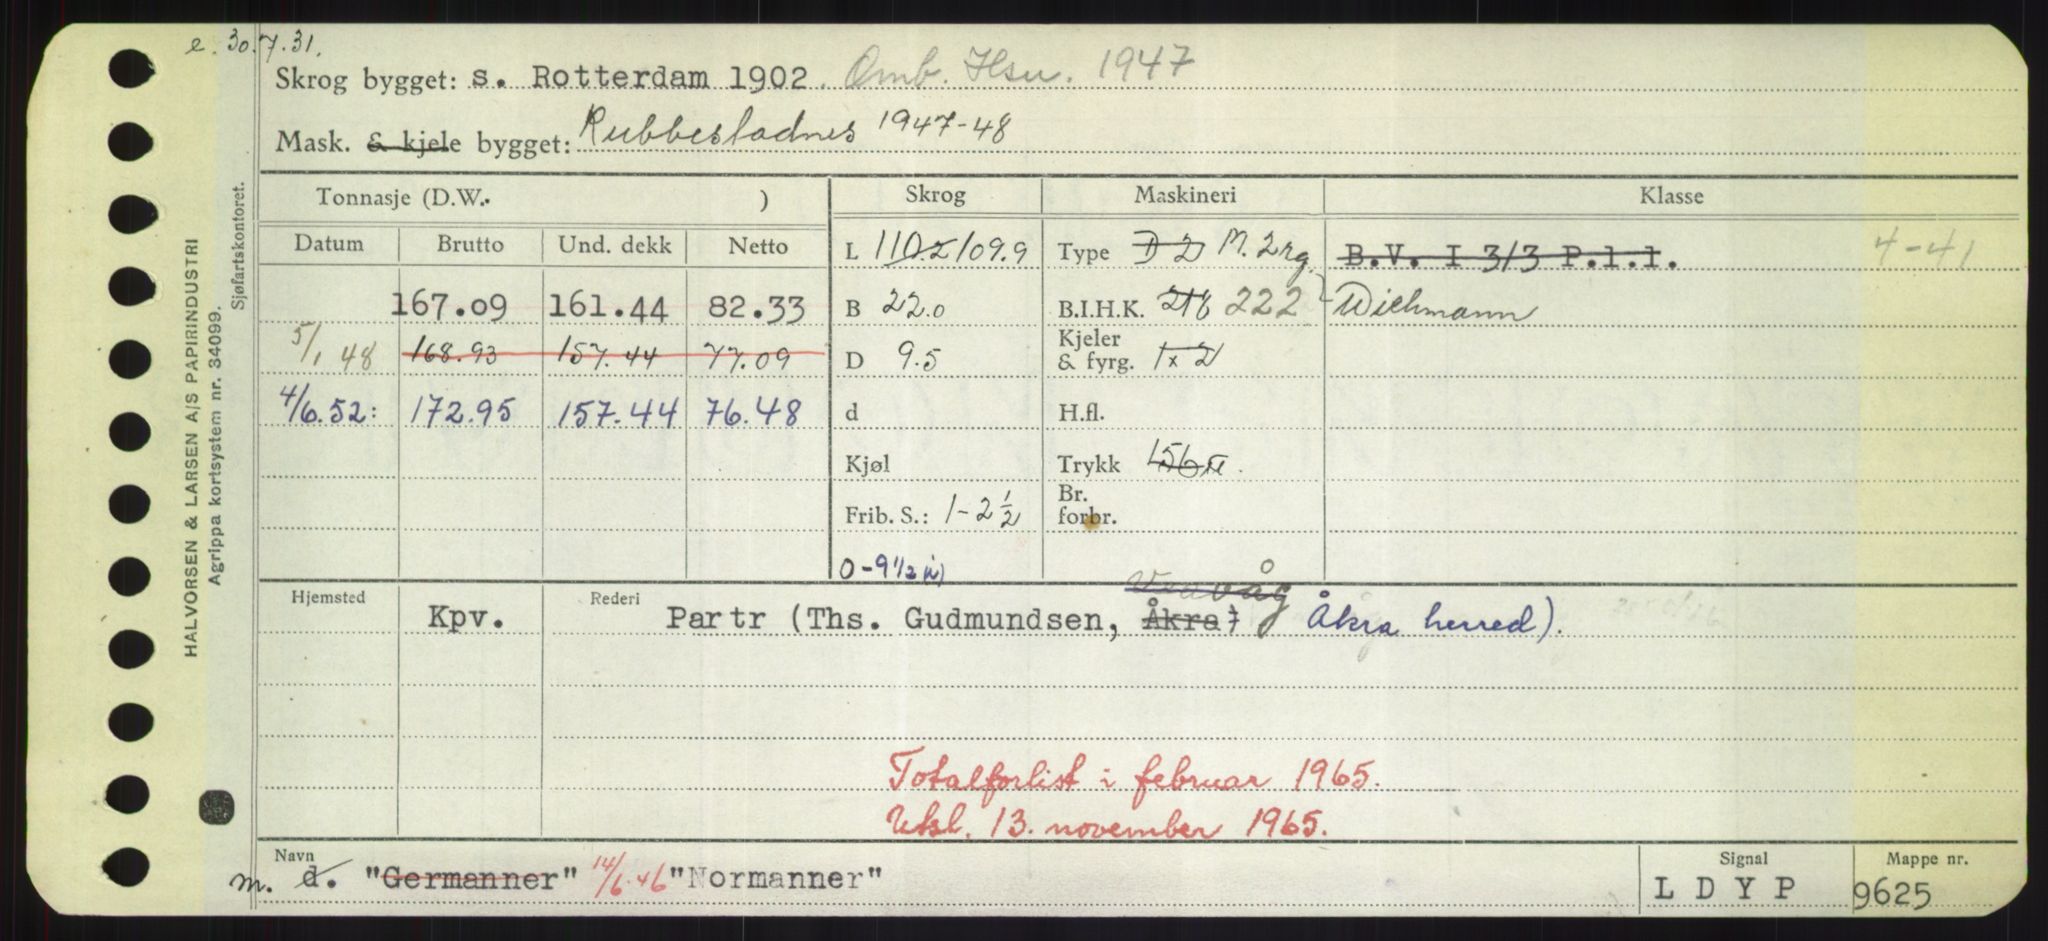 e. 30.7.31.
Skrog bygget: s. Rotterdam 1902. Omb. Hsu. 1947
Mask. & kjele bygget: Rubbestadnes 1947-48
Tonnasje (D.W. ) Skrog Maskineri Klasse
Datum Brutto Und. dekk Netto L 110.2 109.9 Type D 2 M. 2 rg. B.V. I 3/3 P.1.1. 4-41
167.09 161.44 82.33 B 22.0 B.I.H.K. 216 222 Wichmann
5/1 48 168.93 157.44 77.09 D 9.5 Kjeler & fyrg. 1 x 2
4/6.52: 172.95 157.44 76.48 d H.fl.
Kjøl Trykk 156
Frib. S.: 1-2 1/2 Br. forbr.
0-9 1/2 (v)
Hjemsted Kpv. Rederi Partr (Ths. Gudmundsen, Åkra) våg Åkra herred).
Totalforlist i februar 1965.
Utsl. 13. november 1965.
Navn m. d. "Germanner" 14/6.46 "Normanner" Signal LDYP Mappe nr. 9625
HALVORSEN & LARSEN A/S PAPIRINDUSTRI
Agrippa kortsystem nr. 34099.
Sjøfartskontoret.